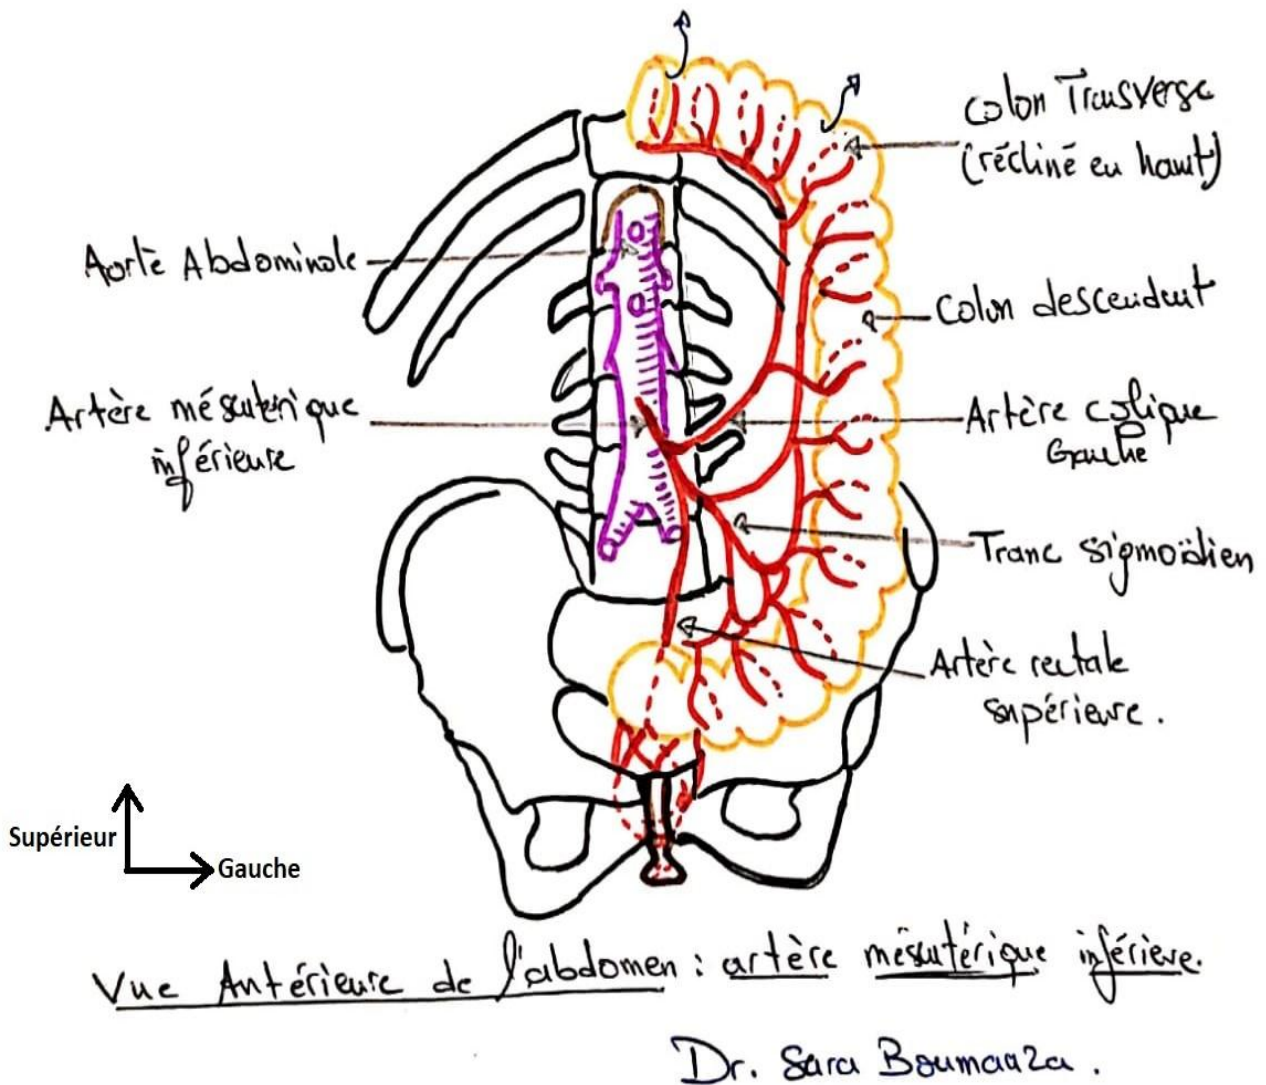 Colon Transverse
(récliné en haut)
Aorte Abdominale
Colon descendent
Artère mésentérique
inférieure
Artère colique
Gauche
Tranc sigmoïdien
Artère rectale
supérieure.
Supérieur
Gauche
Vue Antérieure de l'abdomen : artère mésentérique inférieure.
Dr. Sara Boumaaza.